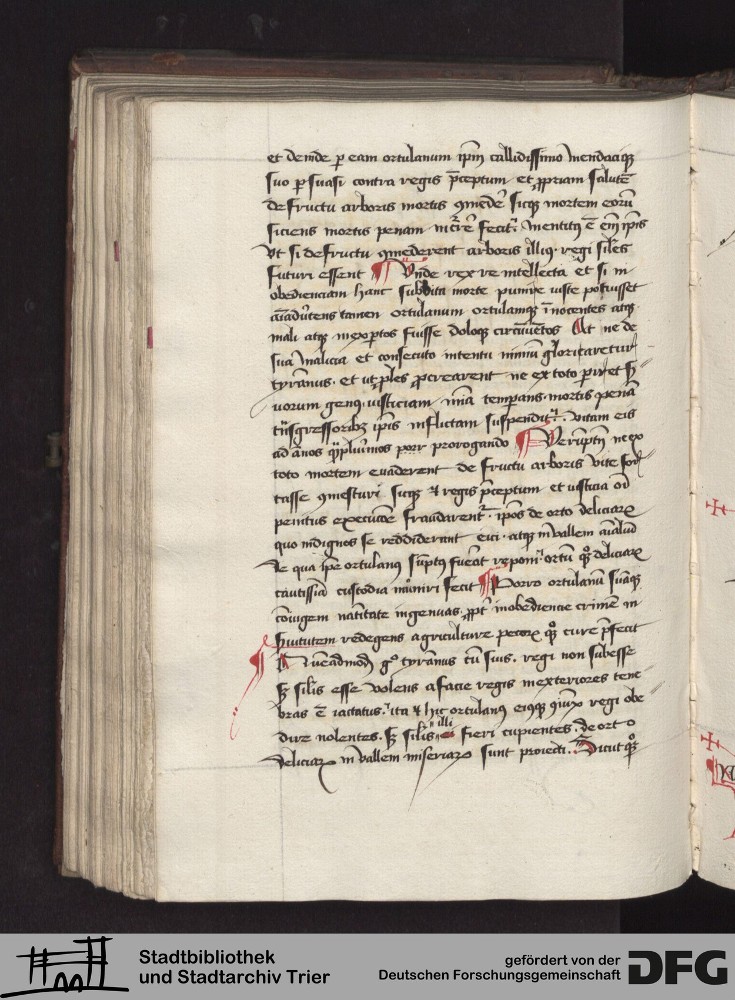 et deinde p eam ortulanum ipm callidissimo mendacioq
suo p suasi contra regis pceptum et ppriam salutē
de fructu arboris mortis 9medē sicq mortem eorū
siciens mortis penam incrē fecit. mentitus ē em ipis
vt si de fructu 9mederent arboris illius regi siles
futuri essent Vnde rex re intellecta et si in
obedienciam hanc subdita morte punire iuste potuisset
aīaduertens tamen ortulanum ortulamq īnocentes atq
mali atq inexpertos fuisse doloq circūuētos At ne de
sua malicia et consecuto intentu nimiū gloriaretur
tyrannus et ut ples pcrearent ne ex toto periret
uorum genus iusticiam mīa temperans mortis penā
trāsgressoribz ipis inflictam suspendit vitam eis
ad ānos qplurimos porr prorogando Verūptn ne ex
toto mortem euaderent de fructu arboris vite for
tasse 9mesturi sicq et regis pceptum et iusticia
penitus execucōe fraudarent ipos de orto deliciarum
quo indignos se reddiderant eici atq in vallem
de qua ipe ortulanus sūptus fuerat reponi ortū qz deliciarum
cautissīa custodia muniri fecit Porro ortulanū suāq
cōiugem natiuitate ingenuas ppt inobediencie crimē in
Seruitutem redegens agriculture pecorum qz cure pfecit
Quēadmodū g tyrannus cū suis regi non subesse
sz silis esse volens a facie regis in exteriores tene
bras ē iactatus ita et hic ortulanus eiusq 9iunx regi obe
dire nolentes sz siles illi fieri cupientes de orto
deliciarum in vallem miseriarum sunt proiecti. Dicit qz
Stadtbibliothek
und Stadtarchiv Trier
gefördert von der
Deutschen Forschungsgemeinschaft
DFG